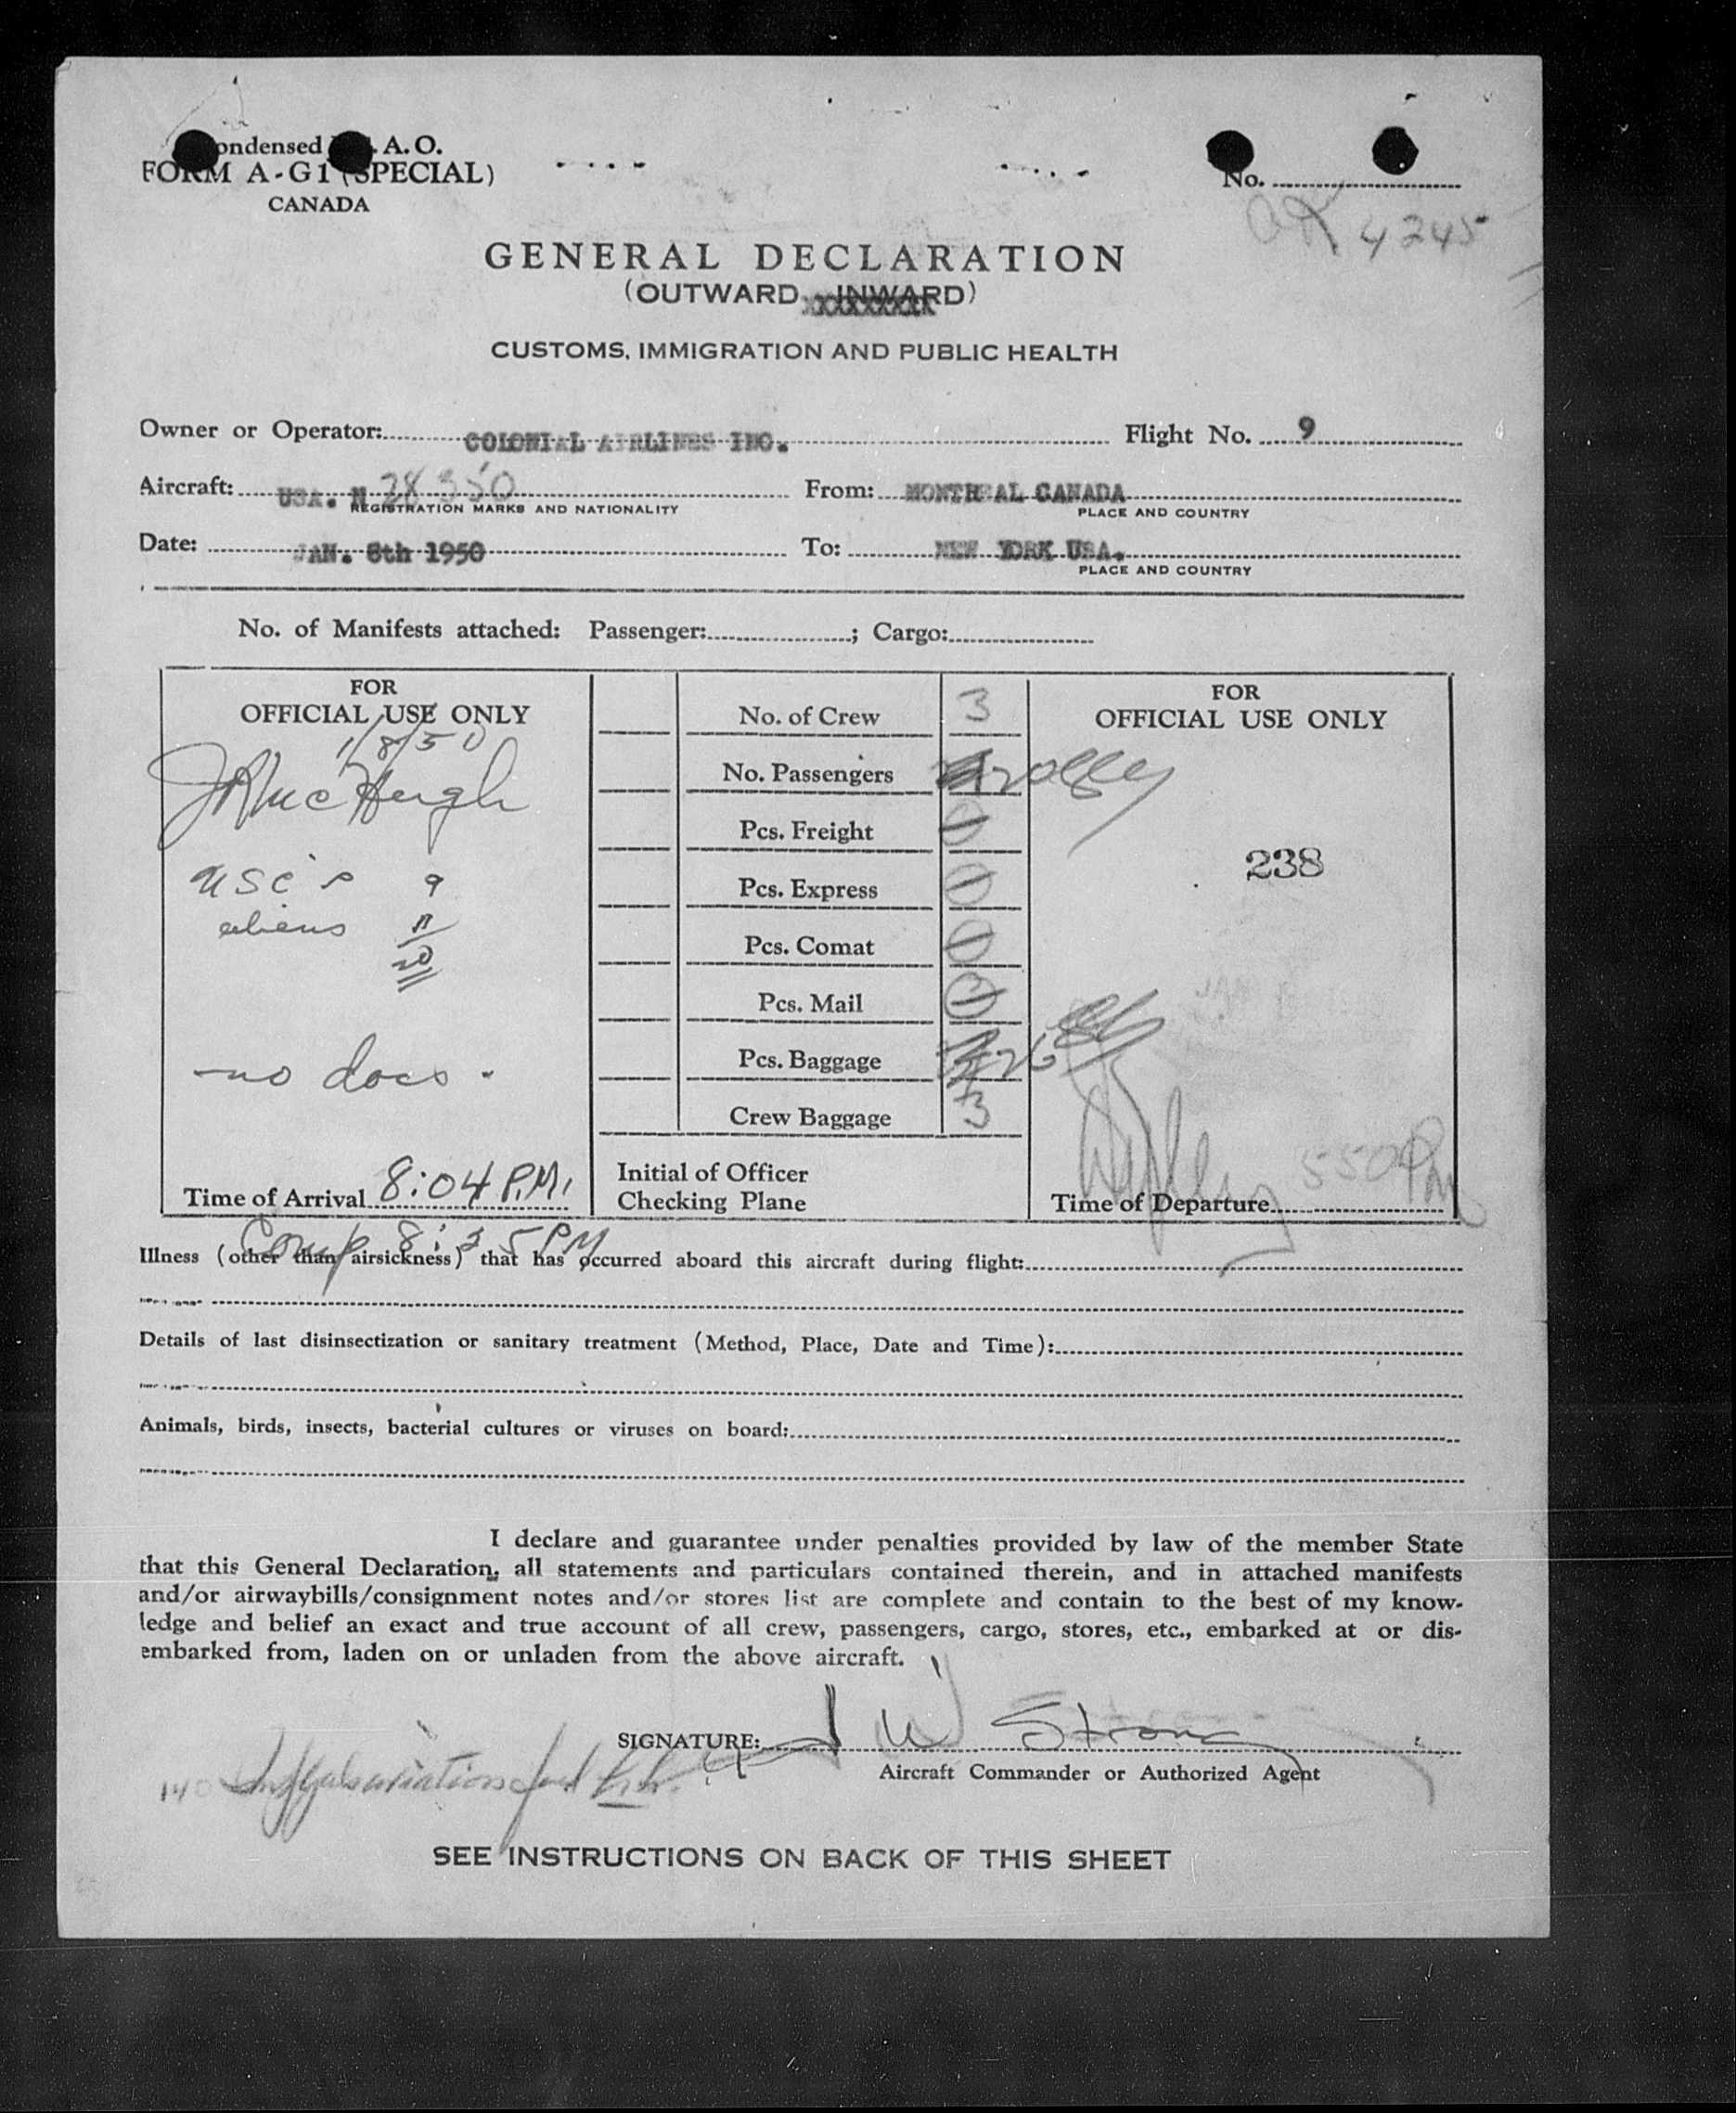 ondensed A.O.
FORM A-G1 (SPECIAL)
CANADA
No.
OK 4245
GENERAL DECLARATION
(OUTWARD INWARD)
CUSTOMS, IMMIGRATION AND PUBLIC HEALTH
Owner or Operator: COLONIAL AIRLINES INC. Flight No. 9
Aircraft: USA. N 28350 From: MONTREAL CANADA
REGISTRATION MARKS AND NATIONALITY PLACE AND COUNTRY
Date: JAN. 8th 1950 To: NEW YORK USA.
PLACE AND COUNTRY
No. of Manifests attached: Passenger: ; Cargo:
FOR
OFFICIAL USE ONLY
1/8/50
USC's 9
aliens 11
20
-no docs-
Time of Arrival 8:04 P.M.
Comp 8:35 PM
No. of Crew 3
No. Passengers 20
Pcs. Freight 0
Pcs. Express 0
Pcs. Comat 0
Pcs. Mail 0
Pcs. Baggage 26
Crew Baggage 3
Initial of Officer
Checking Plane
FOR
OFFICIAL USE ONLY
238
550 Pm
Time of Departure
Illness (other than airsickness) that has occurred aboard this aircraft during flight:
Details of last disinsectization or sanitary treatment (Method, Place, Date and Time):
Animals, birds, insects, bacterial cultures or viruses on board:
I declare and guarantee under penalties provided by law of the member State
that this General Declaration, all statements and particulars contained therein, and in attached manifests
and/or airwaybills/consignment notes and/or stores list are complete and contain to the best of my know-
ledge and belief an exact and true account of all crew, passengers, cargo, stores, etc., embarked at or dis-
embarked from, laden on or unladen from the above aircraft.
SIGNATURE: J W Strong
Aircraft Commander or Authorized Agent
140 gals aviation fuel
SEE INSTRUCTIONS ON BACK OF THIS SHEET